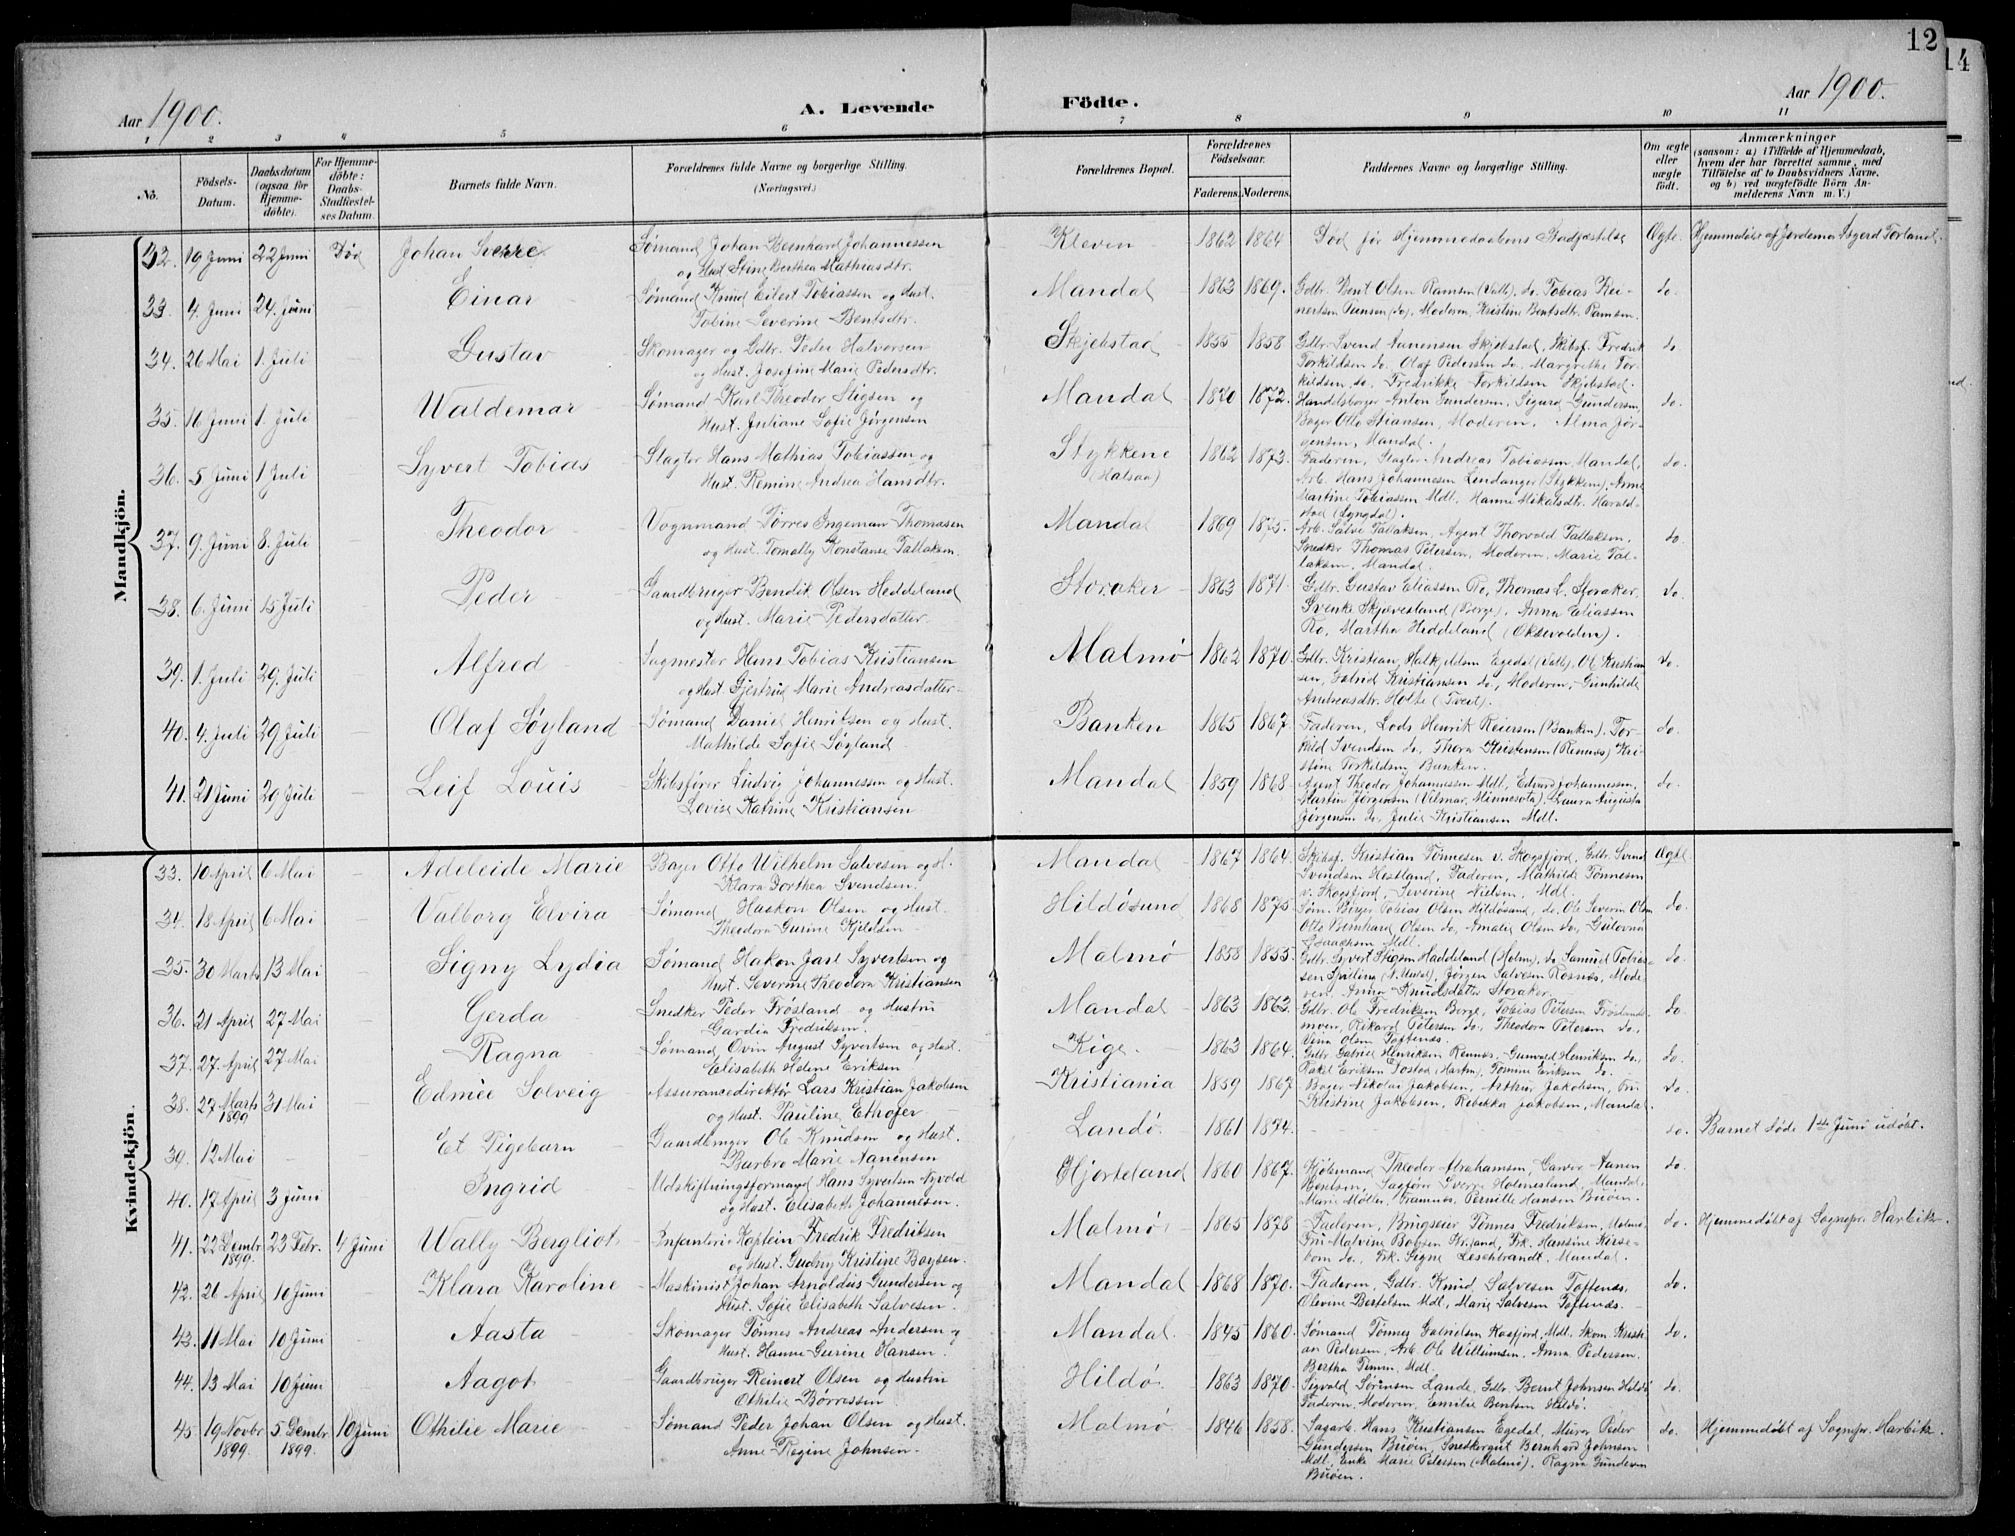 12
14
Aar 1900.
A. Levende
Födte.
Aar 1900.
1 2 3 4 5 6 7 8 9 10 11
No.
Födsels-Datum.
Daabsdatum (ogsaa for Hjemme-döbte).
For Hjemme-döbte: Daabs-Stadfæstel-ses Datum.
Barnets fulde Navn.
Forældrenes fulde Navne og borgerlige Stilling. (Næringsvei.)
Forældrenes Bopæl.
Forældrenes Födselsaar.
Faderens. Moderens.
Faddernes Navne og borgerlige Stilling.
Om ægte eller uægte födt.
Anmærkninger
(saasom: a) i Tilfælde af Hjemmedaab, hvem der har forrettet samme, med Tilföielse af to Daabsvidners Navne, og b) ved uægtefödte Börn An-melderens Navn m. V.)
Mandkjön.
32. 19 Juni 22 Juni Död Johan Sverre Sømand Johan Bernhard Johannessen Kleven 1862 1864 Död før Hjemmedaabens Stadfæstelse Ægte. Hjemmedöbt af Jordemor Aagerd Torland.
og Hust. Stine Berthea Mathiasdtr.
33. 4 Juni 24 Juni Einar Sømand Knud Eilert Tobiassen og Hust. Mandal 1863 1869. Gdbr. Bent Olsen Ramsen (Valle), do. Tobias Rei- do.
Tobine Severine Bentsdtr. nertsen do, Moderen, Kristine Bentsdtr. Ramsen.
34. 26 Mai 1. Juli Gustav Skomager og Gdbr. Peder Halvorsen Skjebstad 1855 1858 Gdbr. Svend Aanensen Skjebstad, Skibsf. Fredrik do.
og Hust. Josefine Marie Pedersdtr. Torkildsen do, Olaf Pedersen do, Margrethe Tor-
kildsen do, Fredrikke Torkildsen Skjebstad.
35. 16 Juni 1. Juli Waldemar Sømand Karl Theodor Stigsen og Mandal 1870 1872. Handelsborger Anton Gundersen, Sigurd Gundersen, do.
Hust. Juliane Sofie Jørgensen Bager Otto Stiansen, Moderen, Alma Jør-
gensen, Mandal.
36. 5 Juni 1 Juli Syvert Tobias Slagter Hans Mathias Tobiassen og Stykkene (Halsaa) 1862 1873. Faderen, Slagter Andreas Tobiassen Mandal, do.
Hust. Remine Andrea Hansdtr. Arb. Hans Johannesen Lendanger (Stykken), Anne
Martine Tobiassen Mdl, Hanne Mikalsdtr. Harald-
stad (Lyngdal)
37. 9. Juni 8. Juli Theodor Vognmand Tørres Ingeman Thomasen Mandal 1869 1875. Arb. Salve Tallaksen, Agent Thorvald Tallaksen, do.
og Hust. Tomally Konstanse Tallaksen. Snedker Thomas Petersen, Moderen, Marie Tal-
laksen, Mandal.
38. 6. Juni 15 Juli Peder Gaardbruger Bendik Olsen Heddeland Storaker 1863 1871. Gdbr. Gustav Eliassen Ro, Thomas L. Storaker, do.
og Hust. Marie Pedersdatter. Svenke Skjævesland (Berge), Anna Eliassen
Ro, Martha Heddeland (Øksevolden).
39. 1. Juli 29. Juli Alfred Sagmester Hans Tobias Kristiansen Malmø 1862 1870. Gdbr. Kristian Egedal (Valle), Ol. Kristian- do.
og Hust. Gjertrud Marie Andreasdatter sen, Astrid Kristiansen do., Moderen, Gunhilde
Andreasdtr. Holte (Tveit).
40. 4. Juli 29 Juli Olaf Søyland Sømand Daniel Henriksen og Hust. Banken 1865 1867. Faderen, Lods Henrik Reiersen (Banken), Tor- do.
Mathilde Sofie Søyland kild Svendsen do, Thora Kristensen (Rennes), Kri-
stine Torkildsen Banken.
41. 21 Juni 29 Juli Leif Louis Skibsfører Ludvig Johannessen og Hust. Mandal 1859 1868. Agent Theodor Johannessen Mdl, Edvard Johannessen, do.
Lovise Katrine Kristiansen Martin Jørgensen (Vilmar, Minnesota), Laura Augusta
Jørgensen do, Julie Kristiansen Mdl.
Kvindekjön.
33. 10 April 6 Mai Adeleide Marie Bager Otto Wilhelm Salvesen og H. Mandal 1867 1864. Skibsf. Kristian Tønnesen v. Skogsfjord, Gdbr. Svend Ægte
Klara Dorthea Svendsen. Svendsen Hestland, Faderen, Mathilde Tønnesen
v. Skogsfjord, Severine Nielsen, Mdl.
34. 18 April 6 Mai Valborg Elvira Sømand Haakon Olsen og Hust. Hildøsund 1868 1875. Søm. Birger Tobias Olsen Hildøsund, do. Ole Severin Olsen do.
Theodora Gurine Kjeldsen Otto Bernhard Olsen do, Amalie Olsen do, Gulovna
Isaachsen Mdl.
35. 30 Marts 13 Mai Signy Lydia Sømand Hakon Jarl Syvertsen og Malmø 1858 1855. Gdbr. Syvert Stigsen Haddeland (Holm), do Samuel Tobias- do.
Hust. Severine Theodora Kristiansen sen Spiling, Jørgen Salvesen Rosnæs, Mode-
ren, Anna Knudsdatter Storaker.
36. 21 April 27 Mai Gerda Snedker Peder Frøsland og Hustru Mandal 1863 1863. Gdbr. Ole Fredriksen Berge, Tobias Petersen Frøslands- do.
Gardia Fredriksen. moen, Rikard Petersen do, Theodora Petersen do,
Vena Olsen Toftenæs.
37. 27 April 27 Mai Ragna Sømand Ovin August Syvertsen og Hust. Kige 1863 1864. Gdbr. Gabriel Henriksen Rennæs, Gunvald Henriksen do, do.
Elisabeth Helene Eriksen Rakel Eriksen, Tomine Eriksen do.
38. 27 Marts 1899 31 Mai Edmée Solveig Assurancedirektør Lars Kristian Jakobsen Kristiania 1859 1867 Bager Nikolai Jakobsen, Arthur Jakobsen, Fru do.
og Hust. Pauline Ethofer Kristine Jakobsen, Rebekka Jakobsen, Mandal.
39. 12 Mai Et Pigebarn Gaardbruger Ole Knudsen og Hust. Landø 1861 1874. do. Barnet døde 1ste Juni udøbt.
Barbro Marie Aanensen
40. 17 April 3 Juni Ingrid Udskiftningsformand Hans Syvertsen Nyvold Hjorteland 1860 1867. Kjøbmand Theodor Abrahamsen, Garver Aanen do.
og Hust. Elisabeth Johannesen. Bentsen, Sagfører Sverre Holmesland, Mandal,
Marie Møller, Framnæs, Pernille Hansen Buøen.
41. 22 Dembr 1899. 23 Febr. 4 Juni Wally Bergliot Infanteri-Kaptein Fredrik Fredriksen Malmø 1865 1878 Faderen, Brugseier Tønnes Fredriksen, Malmø, do. Hjemmedöbt af Sognepr. Harbitz.
og Hust. Gudny Kristine Boysen. Fru Malvine Boysen, Frk. Hansine Kirse-
bom do, Frk. Signe Leschbrandt, Mandal.
42. 26 April 10 Juni Klara Karoline Maskinist Johan Arnoldus Gundersen og Mandal 1868 1870. Faderen, Gdbr. Knud Salvesen Toftenæs, do.
Hust. Sofie Elisabeth Salvesen. Olevine Bertelsen Mdl, Marie Salvesen Toftenæs.
43. 11 Mai 10 Juni Aasta Skomager Tønnes Andreas Andersen og Mandal. 1845 1860. Sømand Tønnes Gabrielsen Kosfjord, Mdl. Skom. Kristi- do.
Hust. Hanne Gurine Hansen. an Pedersen, Arb. Ole Willumsen, Anna Pedersen.
Bertha Timm. Mdl.
44. 13 Mai 10 Juni Aagot Gaardbruger Reinert Olsen og Hustru Hildø. 1863 1870. Sigvald Sørensen Lande, Gdbr. Bernt Johnsen Hildø do.
Othilie Børresen Faderen, Moderen, Emilie Bentsen Hildø.
45. 19 Novbr 1899. 5 Dembr 1899. 10 Juni Othilie Marie Sømand Peder Johan Olsen og Hust. Malmø 1846 1858. Sagarb. Hans Kristiansen Egedal, Murer Peder do. Hjemmedöbt af Sognepr. Harbitz.
Anne Regine Johnsen. Gundersen Buøen, Snedkergut Bernhard Johnsen
Mdl, Enke Marie Petersen (Malmø), Ragna Gundersen
Buøen.